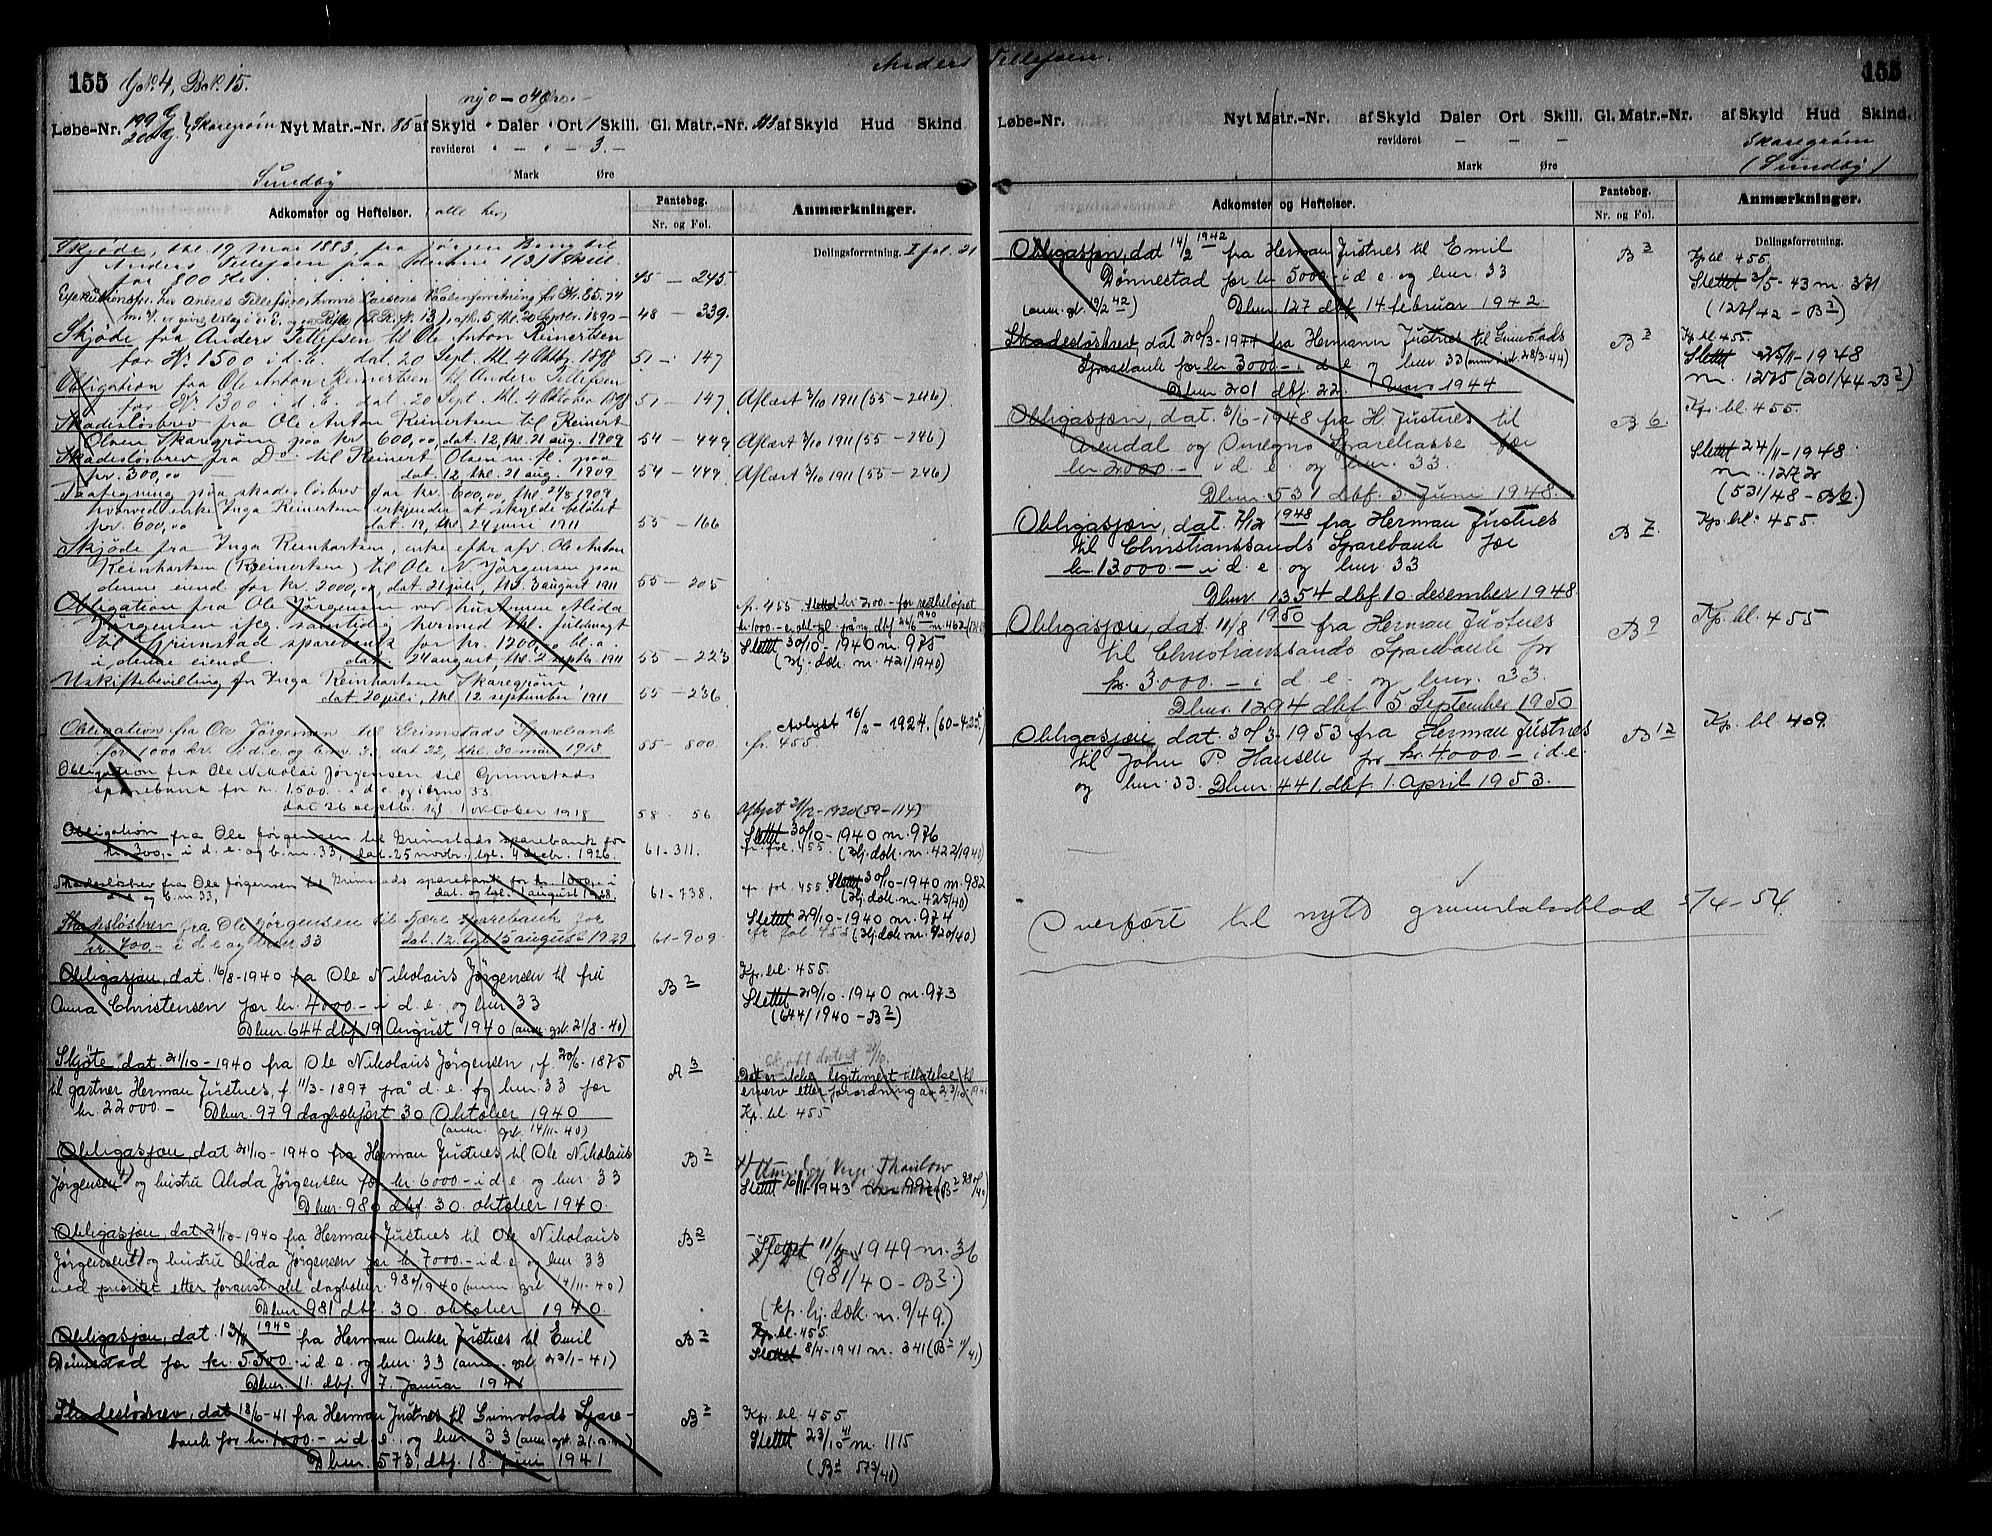 155 G.№ 4, B.№ 15.
Anders Tellefsen.
ny 0 – 04 øre. –
Løbe-Nr. 199 200 Skaregrøm Nyt Matr.-Nr. 85 af Skyld Daler Ort 1 Skill. Gl. Matr.-Nr. af Skyld Hud Skind
revideret " – " – 3. –
Sundby Mark Øre
Adkomster og Heftelser. Pantebog. Nr. og Fol. Anmærkninger.
Skjøde, thl. 19 Mai 1883, fra Jørgen Bang til Delingsforretning. I fol. 21
Anders Tellefsen paa denne 1 (3) Skill.
for 800 Kr. 45 — 245.
Exekutionsfor. hos Anders Tellefsen 48 — 339.
Skjøde fra Anders Tellefsen til Ole Anton Reinertsen
for Kr. 1500 i d. E. dat. 20 Sept. thl. 4 Oktbr. 1898 51 — 147
Obligation fra Ole Anton Reinertsen til Anders Tellefsen
for Kr. 1300 i d. E. dat. 20 Sept. thl. 4 Oktober 1898 51 — 147 Aflæst 3/10 1911 (55 — 246).
Skadesløsbrev fra Ole Anton Reinertsen til Reinert
Olsen Skaregrøm paa kr. 600,00, dat. 12, thl. 21 aug. 1909 54 — 449 Aflæst 3/10 1911 (55 — 246)
Skadesløsbrev fra Do til Reinert Olsen m. fl. paa
kr. 300,00 dat. 12, thl. 21 aug. 1909 54 — 449. Aflæst 3/10 1911 (55 — 246)
Paategning paa skadesløsbrev for kr. 600,00, thl. 21/8 1909,
hvorved enke Inga Reinertsen erkjender at skylde beløbet
kr. 600,00 dat. 19, thl. 24 juni 1911 55 — 166
Skjøde fra Inga Reinhartsen, enke efter afd. Ole Anton
Reinhartsen (Reinertsen) til Ole N. Jørgensen paa
denne eiend for kr. 2000,00, dat. 21 juli, thl. 3 august 1911 55 — 205
Obligation fra Ole Jørgensen ved hustruen Alida
Jørgensen ifg. samtidig hermed thl. fuldmagt
til Grimstad sparebank for kr. 1200,00 bl. a.
i denne eiend. dat. 24 august, thl. 2 septbr. 1911 55 — 223
Slettet 30/10-1940 nr. 975
(Hj. dok. nr. 421/1940)
Uskiftebevilling for Inga Reinhartsen Skaregrøm,
dat. 20 juli, thl. 12 september 1911 55 — 236
Obligation fra Ole Jørgensen til Grimstad Sparebank Avlyst 16/2 – 1924. (60-425)
for 1000 kr. i d. e. og b.nr. 3, dat. 22, thl. 30 mai 1913 55 — 800. fr. 455
Obligation fra Ole Nikolai Jørgensen til Grimstads
sparebank for kr. 1500.– i d. e. og b.no 33
dat 26 septb. tgl. 1 oktober 1918 58. 56 Aflyst 21/12-1920 (59-114)
Obligation fra Ole Jørgensen til Grimstads sparebank for Slettet 30/10-1940 nr. 976
kr. 300,- i d. e. og b. nr. 33, dat. 25 novbr., tgl. 4 decbr. 1926. 61-311. fr. fol. 455 (Hj. dok. nr. 422/1940)
Skadesløsbrev fra Ole Jørgensen til Grimstads sparebank for kr. i
d. e. og b. nr. 33, dat. og tgl. 1 august 1928. 61-738. fr fol. 455 Slettet 30/10-1940 nr. 982
(Hj. dok. nr. 425/40)
Skadesløsbrev fra Ole Jørgensen til Fjære sparebank for Slettet 29/10-1940 nr. 974
kr. 700,- i d. e. og b.nr 33 dat. 12. tgl. 15 august 1929 61-909. fr fol. 455 (Hj. dok. nr. 420/40)
Obligasjon, dat 16/8-1940 fra Ole Nikolaus Jørgensen til fru Kp. bl. 455.
Anna Christensen for kr. 4000 – i d. e. og bnr 33 B 2 Slettet 29/10-1940 nr. 973
Dbnr. 644 dbf 19 August 1940 (anm. grb. 21/8-40) (644/1940 – B 2)
Skjøte dat. 21/10-1940 fra Ole Nikolaus Jørgensen, f. 20/6-1875
til gartner Herman Justnes, f. 11/3-1897 på d. e. og bnr. 33 for A 3
kr. 22000.– Dbnr. 979 dagbokført 30 Oktober 1940 Kp. bl 455
(anm. grb. 14/11-40)
Obligasjon, dat 21/10-1940 fra Herman Justnes til Ole Nikolaus B 2
Jørgensen og hustru Alida Jørgensen for kr. 6000 – i d. e. og bnr 33 Slettet 16/11-1943
Dbnr. 980 dbf. 30. oktober 1940.
Obligasjon, dat. 21/10-1940 fra Herman Justnes til Ole Nikolaus B 2
Jørgensen og hustru Alida Jørgensen for kr 7000.– i d. e og bnr 33 Slettet 1949 nr. 36
med prioritet etter foranst. obl dagboknr. 980/1940 (anm grb 14/11-40) (981/40 – B 2)
Dbnr 981 dbf. 30. oktober 1940. (kp. hj. dok. nr. 9/49.)
Obligasjon, dat. 1940 fra Herman Anker Justnes til Emil B 2 Kp. bl. 455
Dønnestad for kr. 5.500.– i d. e. og bnr. 33 (anm. grb. 23/1-41) Slettet 8/4-1941 nr. 341 (B 2 11/41)
Dbnr. 11. dbf. 7. Januar 1941
Skadesløsbrev, dat 18/6-41 fra Herman Justnes til Grimstads Spare- B 2 Kp. bl. 455.
bank for kr. 1000 – i d. e. og bnr. 33 (anm. grb. 21. ) Slettet 23/10 41 nr. 1115
Dbnr. 573, dbf. 18. Juni 1941 (B 2 573/41)
155
Løbe-Nr. Nyt Matr.-Nr. af Skyld Daler Ort Skill. Gl. Matr.-Nr. af Skyld Hud Skind.
revideret — — — Skaregrøm
Mark Øre (Sundby)
Adkomster og Heftelser. Pantebog. Nr. og Fol. Anmærkninger.
Delingsforretning.
Obligasjon, dat 14/2 1942 fra Herman Justnes til Emil B 3 Kp bl. 455.
Dønnestad for kr 5000 – i d. e. og bnr. 33 Slettet 3/5-43 nr. 331
(anm. grb. 19/2 42) Dbnr. 127 dbf 14 februar 1942. (127/42 – B 3)
Skadesløsbrev, dat 20/3-1944 fra Hermann Justnes til Grimstads B 3 Kp. bl. 455.
Sparebank for kr 3000 – i d. e og bnr 33 (anm. grb. 28/3-44) Slettet 25/11-1948
Dbnr 201 dbf. 22. Mars 1944 nr. 1275 (201/44 – B 3)
Obligasjon, dat. 3/6-1948 fra H. Justnes til B 6. Kp. bl. 455.
Arendal og Omegns Sparekasse for Slettet 24/11-1948
kr 2000.– i d. e. og bnr. 33. nr. 1272
Dbnr. 531 dbf. 3. Juni 1948. (531/48 – B 6.)
Obligasjon, dat. 7/12 1948 fra Herman Justnes B 7. Kp. bl. 455.
til Christianssands Sparebank for
kr 13000.– i d. e. og bnr 33
Dbnr. 1354 dbf 10. desember 1948
Obligasjon, dat. 11/8 1950 fra Herman Justnes B 9 Kp. bl. 455
til Christianssands Sparebank for
kr. 3000. – i d. e. og bnr. 33.
Dbnr. 1294 dbf 5 September 1950
Obligasjon, dat. 30/3-1953 fra Herman Justnes B 12 Kp. bl. 409.
til John P. Hansen for kr. 4000 – i d. e
og bnr. 33. Dbnr. 441, dbf. 1. April 1953.
Overført til nytt grunnboksblad 5/4-54.